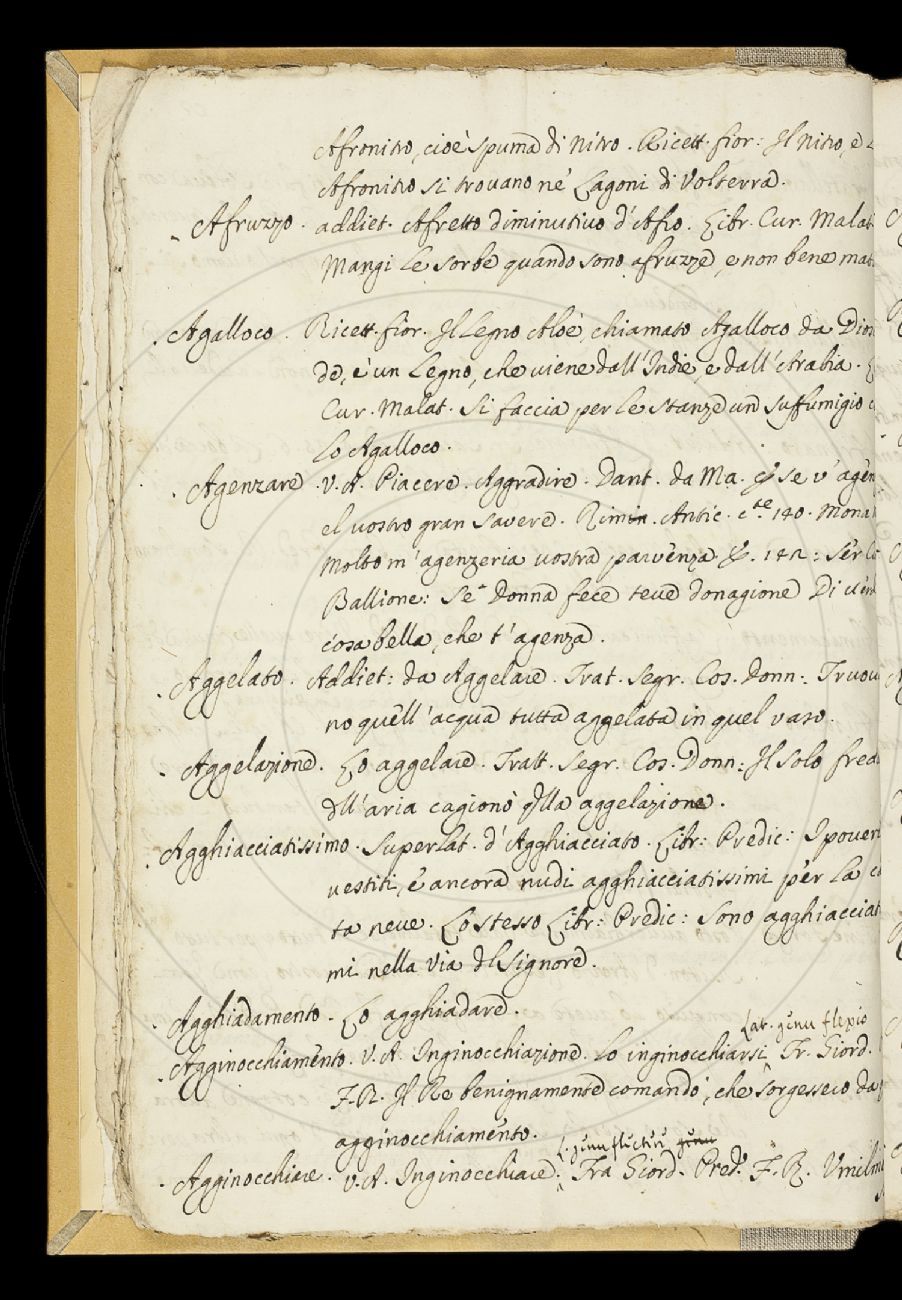 Afronitro, cioè spuma di Nitro. Ricett. fior: Il Nitro, e
Afronitro si trovano ne' Lagoni di Volterra.
Afruzzo. addiet. Afretto diminutivo d'Afro. Libr. Cur. Malat
Mangi le sorbe quando sono afruzze, e non bene mat
Agalloco. Ricett. fior. Il legno Aloè, chiamato Agalloco da Dios
de, è un legno, che viene dall'Indie, e dall'Arabia.
Cur. Malat. Si faccia per le stanze un suffumigio
lo Agalloco.
Agenzare. V.A. Piacere. Aggradire. Dant. da Ma. se v'agen
el vostro gran savere. Rim. Antic. cte. 140. Mona
Molto m'agenzeria vostra parvenza &. 142: Ser
Ballione: Se Donna fece teve donagione Di
cosa bella, che t'agenza.
Aggelato. Addiet: da Aggelare. Trat. Segr. Cos. Donn: Truova
no quell'acqua tutta aggelata in quel vaso.
Aggelazione. Lo aggelare. Tratt. Segr. Cos. Donn: Il solo fred
dll'aria cagionò qlla aggelazione.
Agghiacciatissimo. Superlat. d'Agghiacciato. Libr: Predic: I poveri
vestiti, e ancora nudi agghiacciatissimi per la
ta neve. Lo stesso Libr: Predic: Sono agghiacciat
mi nella via dl Signore.
Agghiadamento. Lo agghiadare.
Lat. genu flexio
Agginocchiamento. V.A. Inginocchiazione. Lo inginocchiarsi Fr. Giord.
F.R. Il Re benignamente comandò, che sorgessero da
agginocchiamento.
L. genu flectere genu
Agginocchiare. V.A. Inginocchiare: Fra Giord. Pred. F. R. Umilmē